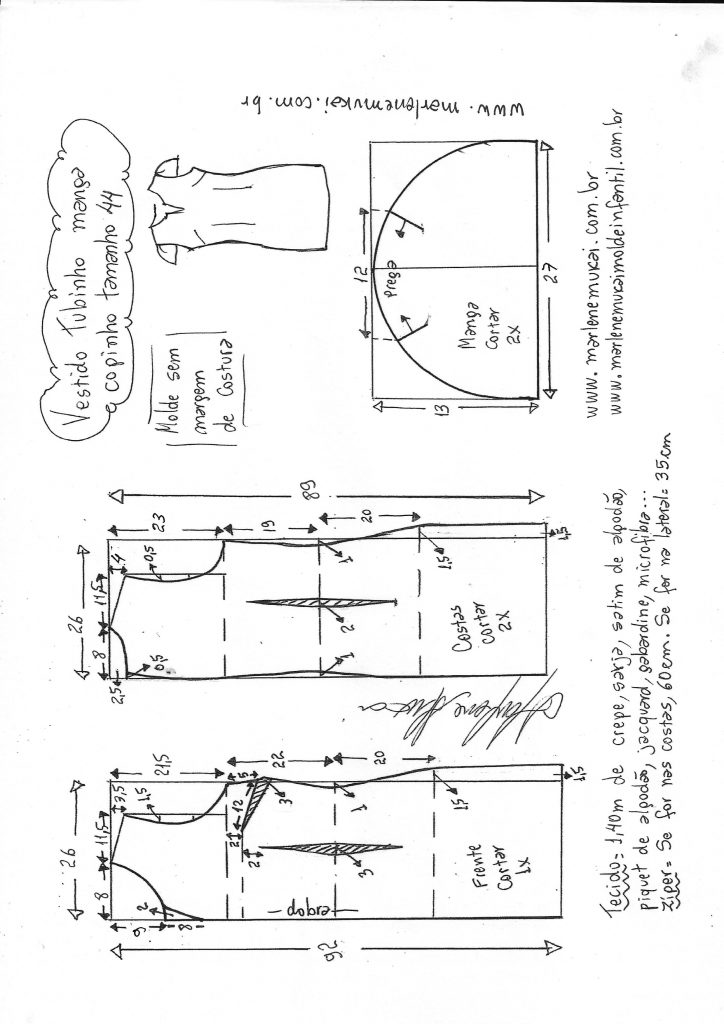 Vestido Tubinho manga
copinho tamanho 44
Molde sem
margem
de costura
www.marlenemukai.com.br
12
Prega
Manga
Cortar
2X
13
27
www.marlenemukai.com.br
www.marlenemukaimoldeinfantil.com.br
89
23
19
20
4
0,5
26
11,5
8
2,5
0,5
1
1,5
1,5
2
1
Costas
Cortar
2X
21,5
22
20
3,5
1,5
5
3
12
2
2
3
1
1,5
1,5
26
11,5
8
2
9
8
dobra
Frente
Cortar
1X
92
Tecido = 1,40m de crepe, sarja, satim de algodão,
piquet de algodão, jacquard, gabardine, microfibra...
Zíper = Se for nas costas, 60cm. Se for na lateral = 35cm